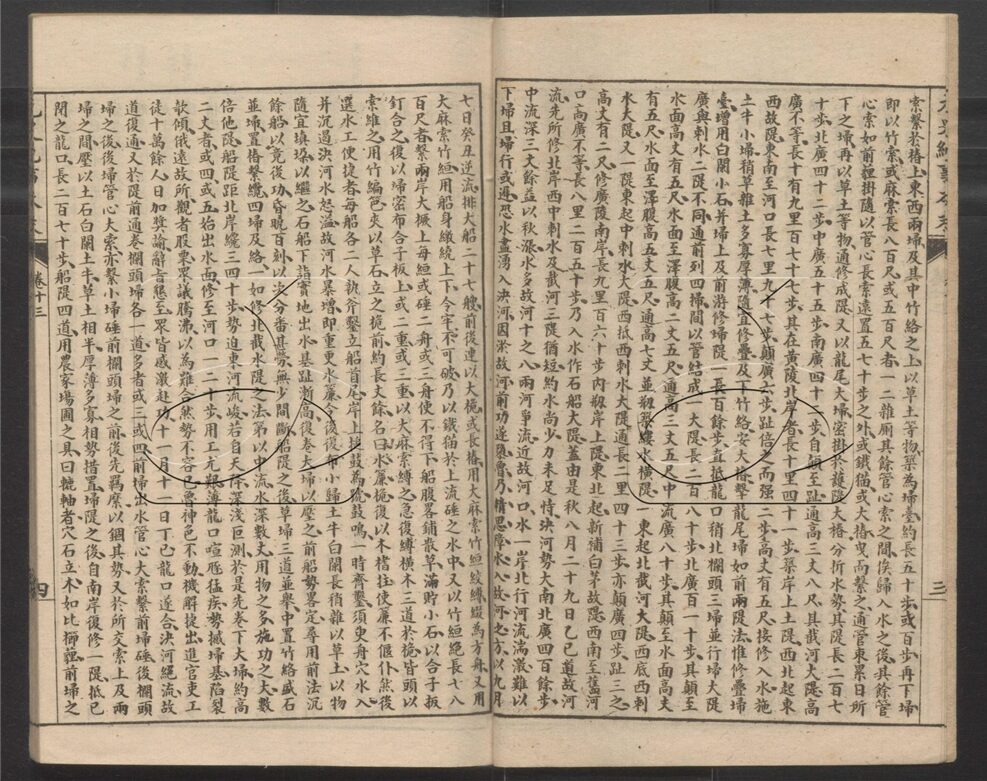 索繫於樁上東西兩埽及其中竹絡之上以草土等物築為埽臺約長五十步或百步再下埽
即以竹索或麻索長八百尺或五百尺者一二雜廁其餘管心索之間俟歸入水之後其餘管
心索如前貍掛隨以管心長索遠置五七十步之外或鐵猫或大樁曳而繫之通管束累日所
下之埽再以草土等物通修成隄又以龍尾大埽密掛於護隄大樁分折水勢其隄長二百七
十步北廣四十二步中廣五十五步南廣四十二步自顛至趾通高三丈八尺其截河大隄高
廣不等長十有九里百七十七步其在黃陵北岸者長十里四十一步築岸上土隄西北起東
西故隄東南至河口長七里九十七步顛廣六步趾倍之而强二步高丈有五尺接修入水施
土牛小埽稍草雜土多寡厚薄隨宜修疊及下竹絡安大樁繫龍尾埽如前兩隄法惟修疊埽
臺增用白闌小石并埽上及前游修埽隄一長百餘步直抵龍口稍北欄頭三埽並行埽大隄
廣與刺水二隄不同通前列四埽間以管絡成一大隄長二百八十步北廣百一十步其顛至
水面高丈有五尺水面至澤腹高二丈五尺通高三丈五尺中流廣八十步其顛至水面高丈
有五尺水面至澤腹高五丈五尺通高七丈並剏築縷水橫隄一東起北截河大隄西底西刺
水大隄又一隄東起中刺水大隄西抵西刺水大隄通長二里四十三步亦顛廣四步趾三之
高丈有二尺修廣陵南岸長九里百六十步內剏岸上隄東北起新補白茅故隄西南至舊河
口高廣不等長八里二百五十步乃入水作石船大隄蓋由是秋八月二十九日乙巳道故河
流先所修北岸西中刺水及截河三隄猶短約水尚少力未足恃決河勢大南北廣四百餘步
中流深三丈餘益以秋漲水多故河十之八兩河爭流近故河口水一岸北行河流湍激難以
下埽且埽行或遲恐水盡湧入決河因淤故河前功遂隳魯乃精思障水入故河之方以九月
卷十三
三
七日癸丑逆流排大船二十七艘前後連以大桅或長樁用大麻索竹絙絞縛綴為方舟又用
大麻索竹絙用船身繳繞上下令牢不可破乃以鐵猫於上流硾之水中又以竹絙絕長七八
百尺者繫兩岸大橛上每絙或硾二舟或三舟使不得下船腹畧鋪散草滿貯小石以合子板
釘合之復以埽密布合子板上或二重或三重以大麻索縛之急復縛橫木三道於桅皆頭以
索維之用竹編笆夾以草石立之桅前約長丈餘名曰水簾桅復以木楮拄使簾不偃仆然後
選水工便捷者每船各二人執斧鑿立船首尾岸上搥鼓為號鼓鳴一時齊鑿須臾舟穴水入
并沉遏決河水怒溢故河水暴增即重更水簾令後復布小埽土牛白闌長稍雜以草土以物
隨宜填垛以繼之石船下詣實地出水基趾漸高復卷大埽以壓之前船勢畧定尋用前法沉
餘船以竟後功昏曉百刻以次分番甚勞無少間斷船隄之後草埽三道並舉中置竹絡盛石
並埽置樁繫纜四埽及絡一如修北截水隄之法第以中流水深數丈用物之多施功之大數
倍他隄船隄距北岸纔三四十步勢迫東河流峻若自天降深淺叵測於是先卷下大埽約高
二丈者或四或五始出水面修至河口一二十步用工尤艱薄龍口喧豗猛疾勢撼埽基陷裂
欹傾俄遠故所觀者股栗眾議騰沸以為難合然勢不容已魯神色不動機解捷出進官吏工
徒十萬餘人日加獎諭辭旨懇至眾皆感激赴功十一月十一日丁巳龍口遂合決河絕流故
道復通又於隄前通卷欄頭埽各一道多者或三或四前埽出水管心大索繫前埽硾後欄頭
埽之後後埽管心大索亦繫小埽硾前欄頭埽之前後先羈縻以錮其勢又於所交索上及兩
埽之間壓以土石白闌土牛草土相半厚薄多寡相勢措置埽隄之後自南岸復修一隄抵已
閉之龍口長二百七十步船隄四道用農家場圃之具曰轆軸者穴石立木如比櫛薶前埽之
四